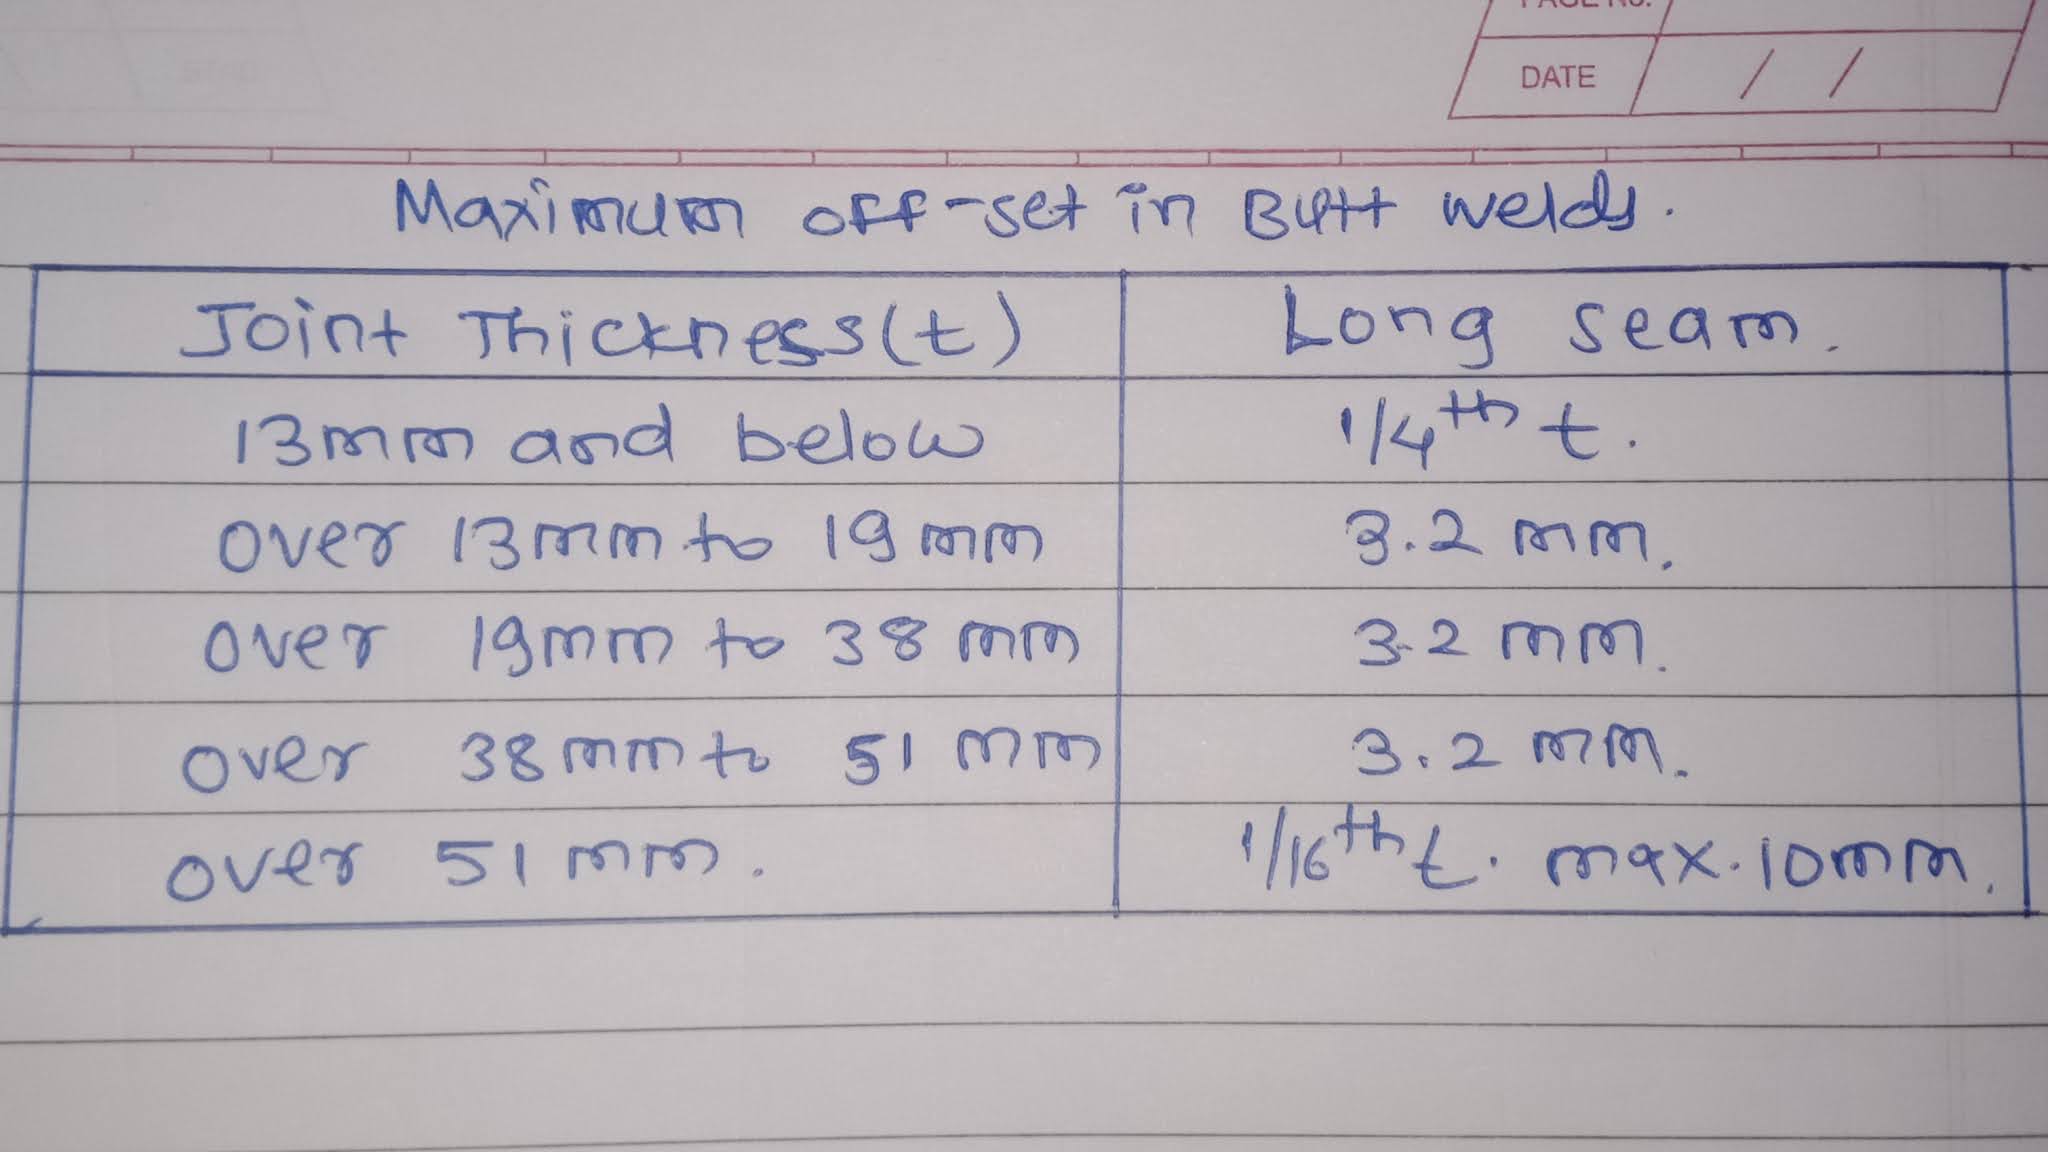 PAGE No.
DATE / /
Maximum off-set in Butt welds.
Joint Thickness(t) Long seam.
13mm and below 1/4th t.
over 13mm to 19mm 3.2 mm.
over 19mm to 38 mm 3.2 mm.
over 38mm to 51 mm 3.2 mm.
over 51 mm. 1/16th t. max. 10mm.